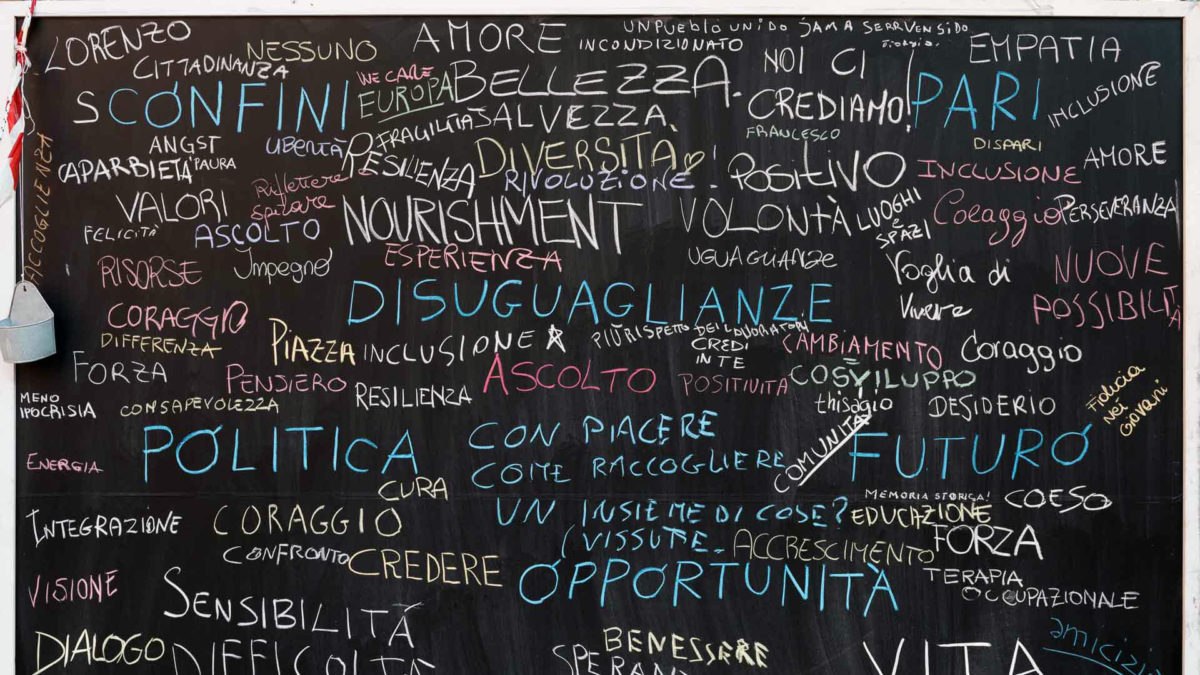 LORENZO
NESSUNO
CITTADINANZA
AMORE
INCONDIZIONATO
UN PUEBLO UNIDO JAMA SERR VENSIDO
NOI CI
CREDIAMO!
FRANCESCO
EMPATIA
SCONFINI
WE CARE
EUROPA
BELLEZZA.
SALVEZZA.
PARI
INCLUSIONE
DISPARI
AMORE
ANGST
LIBERTÀ
FRAGILITÀ
RESILIENZA
DIVERSITA
RIVOLUZIONE!
POSITIVO
INCLUSIONE
CAPARBIETÀ
PAURA
Riflettere
spitare
ACCOGLIENZA
VALORI
FELICITÀ
ASCOLTO
NOURISHMENT
VOLONTÀ
LUOGHI
E
SPAZI
Colaggio
PERSEVERANZA
RISORSE
Impegno
ESPERIENZA
UGUAGLIANZE
Voglia di
Vivere
NUOVE
POSSIBILITÀ
DISUGUAGLIANZE
CORAGGIO
DIFFERENZA
PIAZZA
INCLUSIONE
PIÙ RISPETTO DEI LAVORATORI
CREDI
IN TE
CAMBIAMENTO
=
COSVILUPPO
Coraggio
FORZA
PENSIERO
RESILIENZA
ASCOLTO
POSITIVITÀ
thisagio
DESIDERIO
Fiducia
nei
Giovani
MENO
IPOCRISIA
CONSAPEVOLEZZA
COMUNITÀ
POLITICA
CON PIACERE
COME RACCOGLIERE
UN INSIEME DI COSE?
VISSUTE.
FUTURO
ENERGIA
CURA
MEMORIA STORICA!
COESO
INTEGRAZIONE
CORAGGIO
EDUCAZIONE
CONFRONTO
CREDERE
ACCRESCIMENTO
FORZA
OPPORTUNITÀ
TERAPIA
OCCUPAZIONALE
VISIONE
SENSIBILITÁ
DIALOGO
DIFFICOLTÀ
BENESSERE
VITA
amicizia